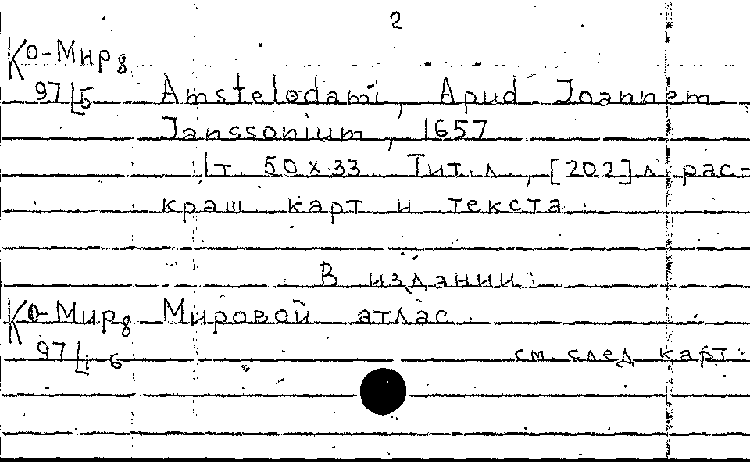 2
Ко-Мир 8
97/5 Amstelodami, Apud Joannem
Janssonium, 1657
1т. 50x33 Тит.л., [202] л рас-
краш карт и текста.
В издании:
Ко-Мир 8 Мировой атлас.
97/1-6 см. след карт.